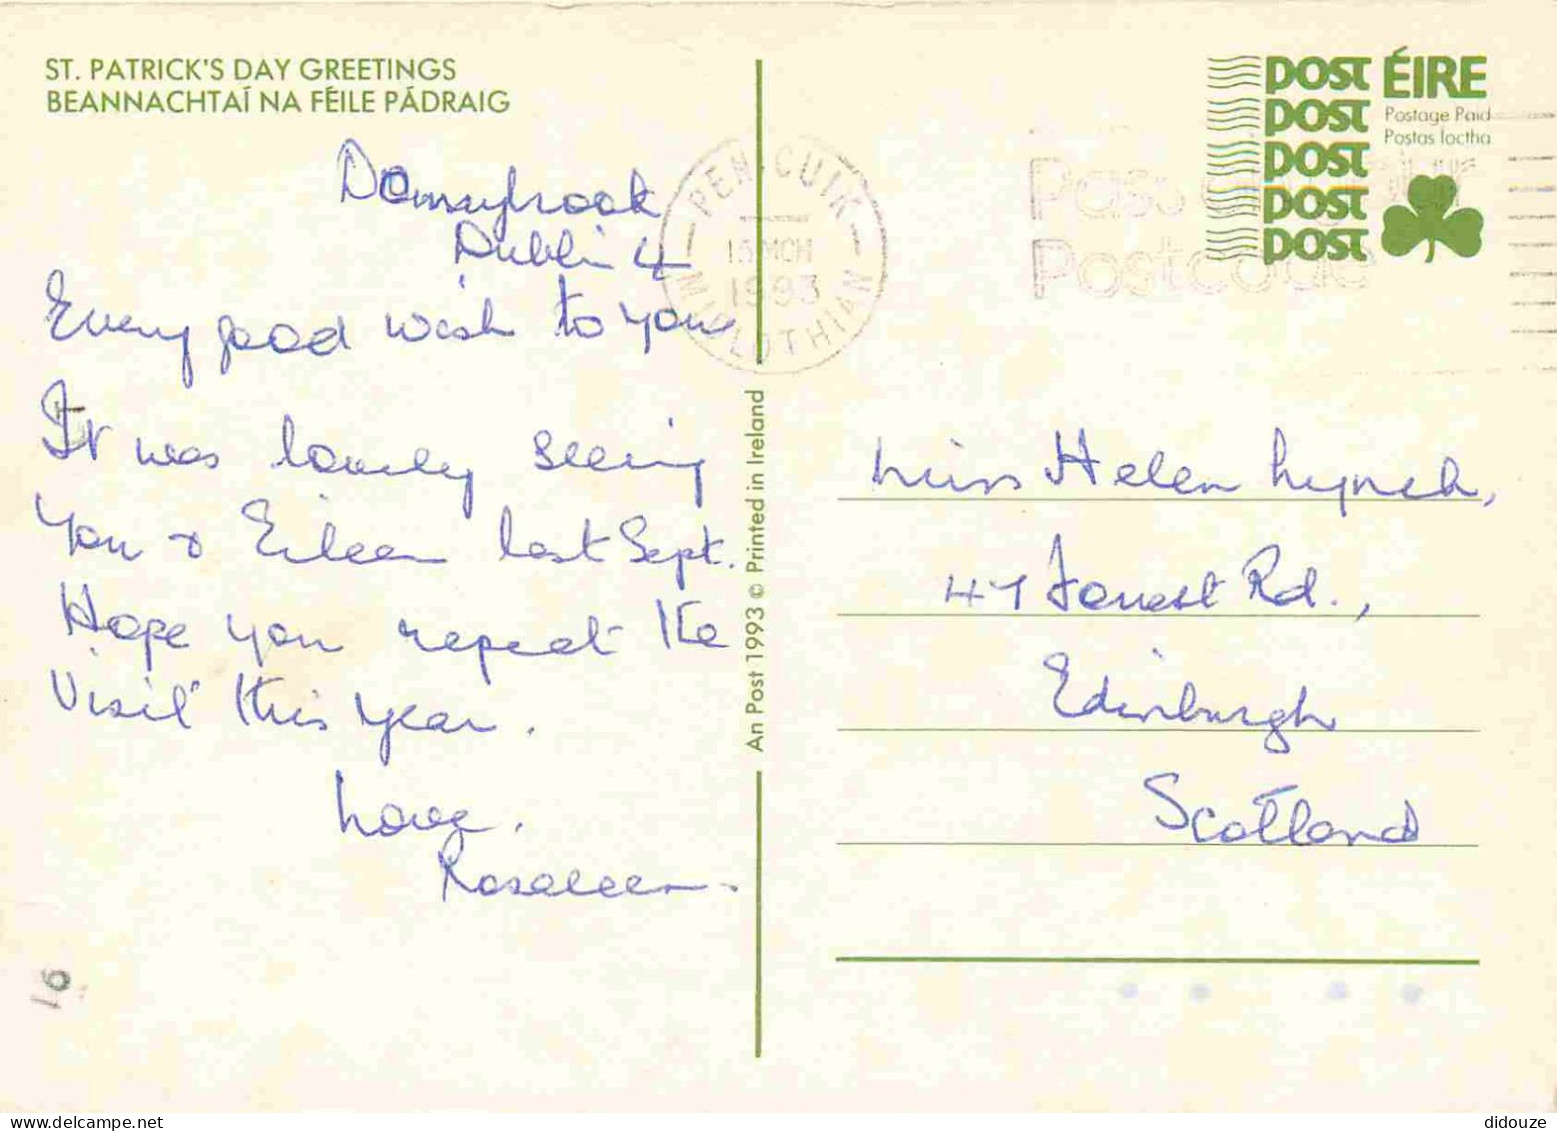 ST. PATRICK'S DAY GREETINGS
BEANNACHTAÍ NA FÉILE PÁDRAIG
Donnybrook
Dublin 4
Every good wish to you
It was lovely seeing
you & Eileen last Sept.
Hope you repeat the
visit this year.
Love,
Rosaleen.
An Post 1993 © Printed in Ireland
PENICUIK
15 MCH
1993
MIDLOTHIAN
Postcode
POST ÉIRE
POST Postage Paid
Postas Íoctha
POST
POST
POST
Miss Helen Lynch,
47 Forrest Rd.,
Edinburgh
Scotland
didouze